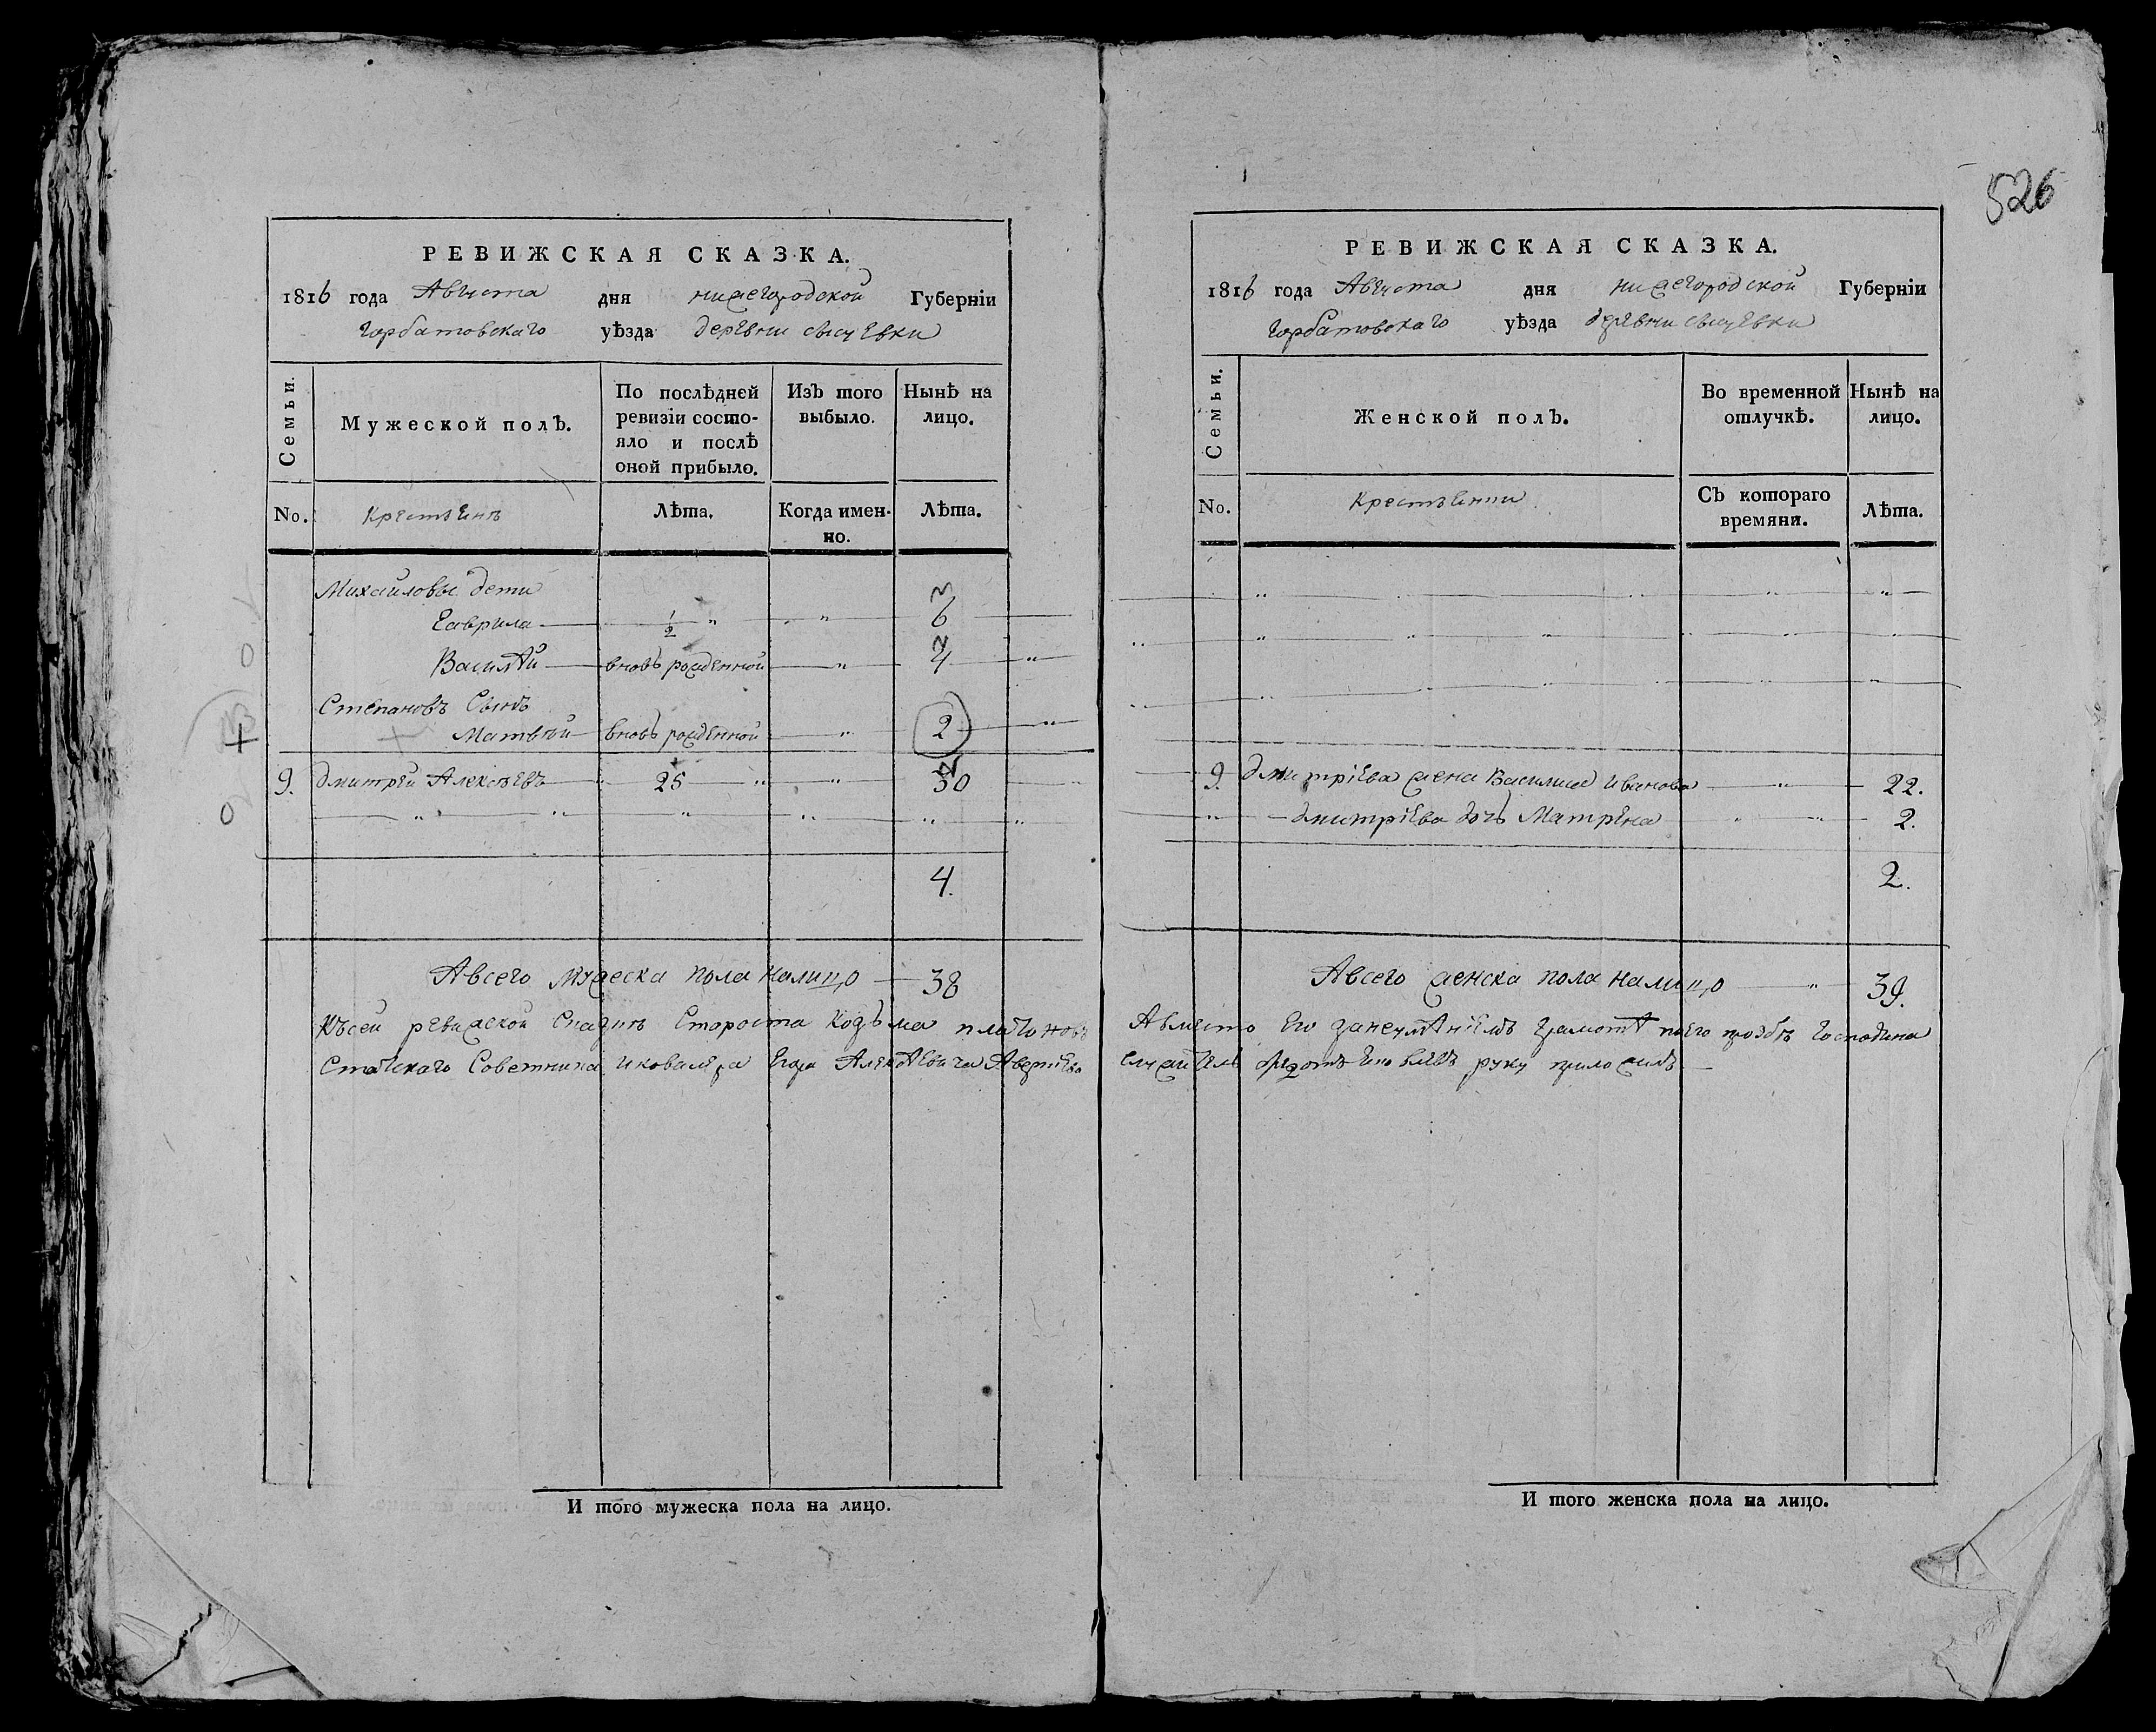 526
РЕВИЖСКАЯ СКАЗКА.
1816 года Августа дня нижегородской Губерніи
Горбатовскаго уѣзда деревни
Семьи.
Мужеской полЪ.
По послѣдней ревизіи состо-
яло и послѣ оной прибыло.
ИзЪ того выбыло.
Нынѣ на лицо.
No.
Лѣта.
Когда имен-
но.
Лѣта.
Михайловы дети
Гаврила ½ " " 6
Василѣй вновь рожденной " 4 "
Степановъ Сынъ
Матвѣй вновь рожденной " 2 "
9. дмитрей Алексѣевъ " 25 " " 30 "
4.
Авсего мужеска пола налицо 38
Късей ревижской Сказкѣ Староста Козьма платоновъ
Статскаго Советника икавалера Егора
И того мужеска пола на лицо.
РЕВИЖСКАЯ СКАЗКА.
1816 года Августа дня нижегородской Губерніи
Горбатовскаго уѣзда деревни
Семьи.
Женской полЪ.
Во временной отлучкѣ.
Нынѣ на лицо.
No.
СЪ котораго времяни.
Лѣта.
9. дмитріева жена Василиса иванова " 22.
дмитріева дочь Матрена " " 2.
2.
Авсего женска пола налицо " 39.
Авместо Его занеумѣніемъ грамотѣ поего прозбѣ Господина
руку приложилъ
И того женска пола на лицо.